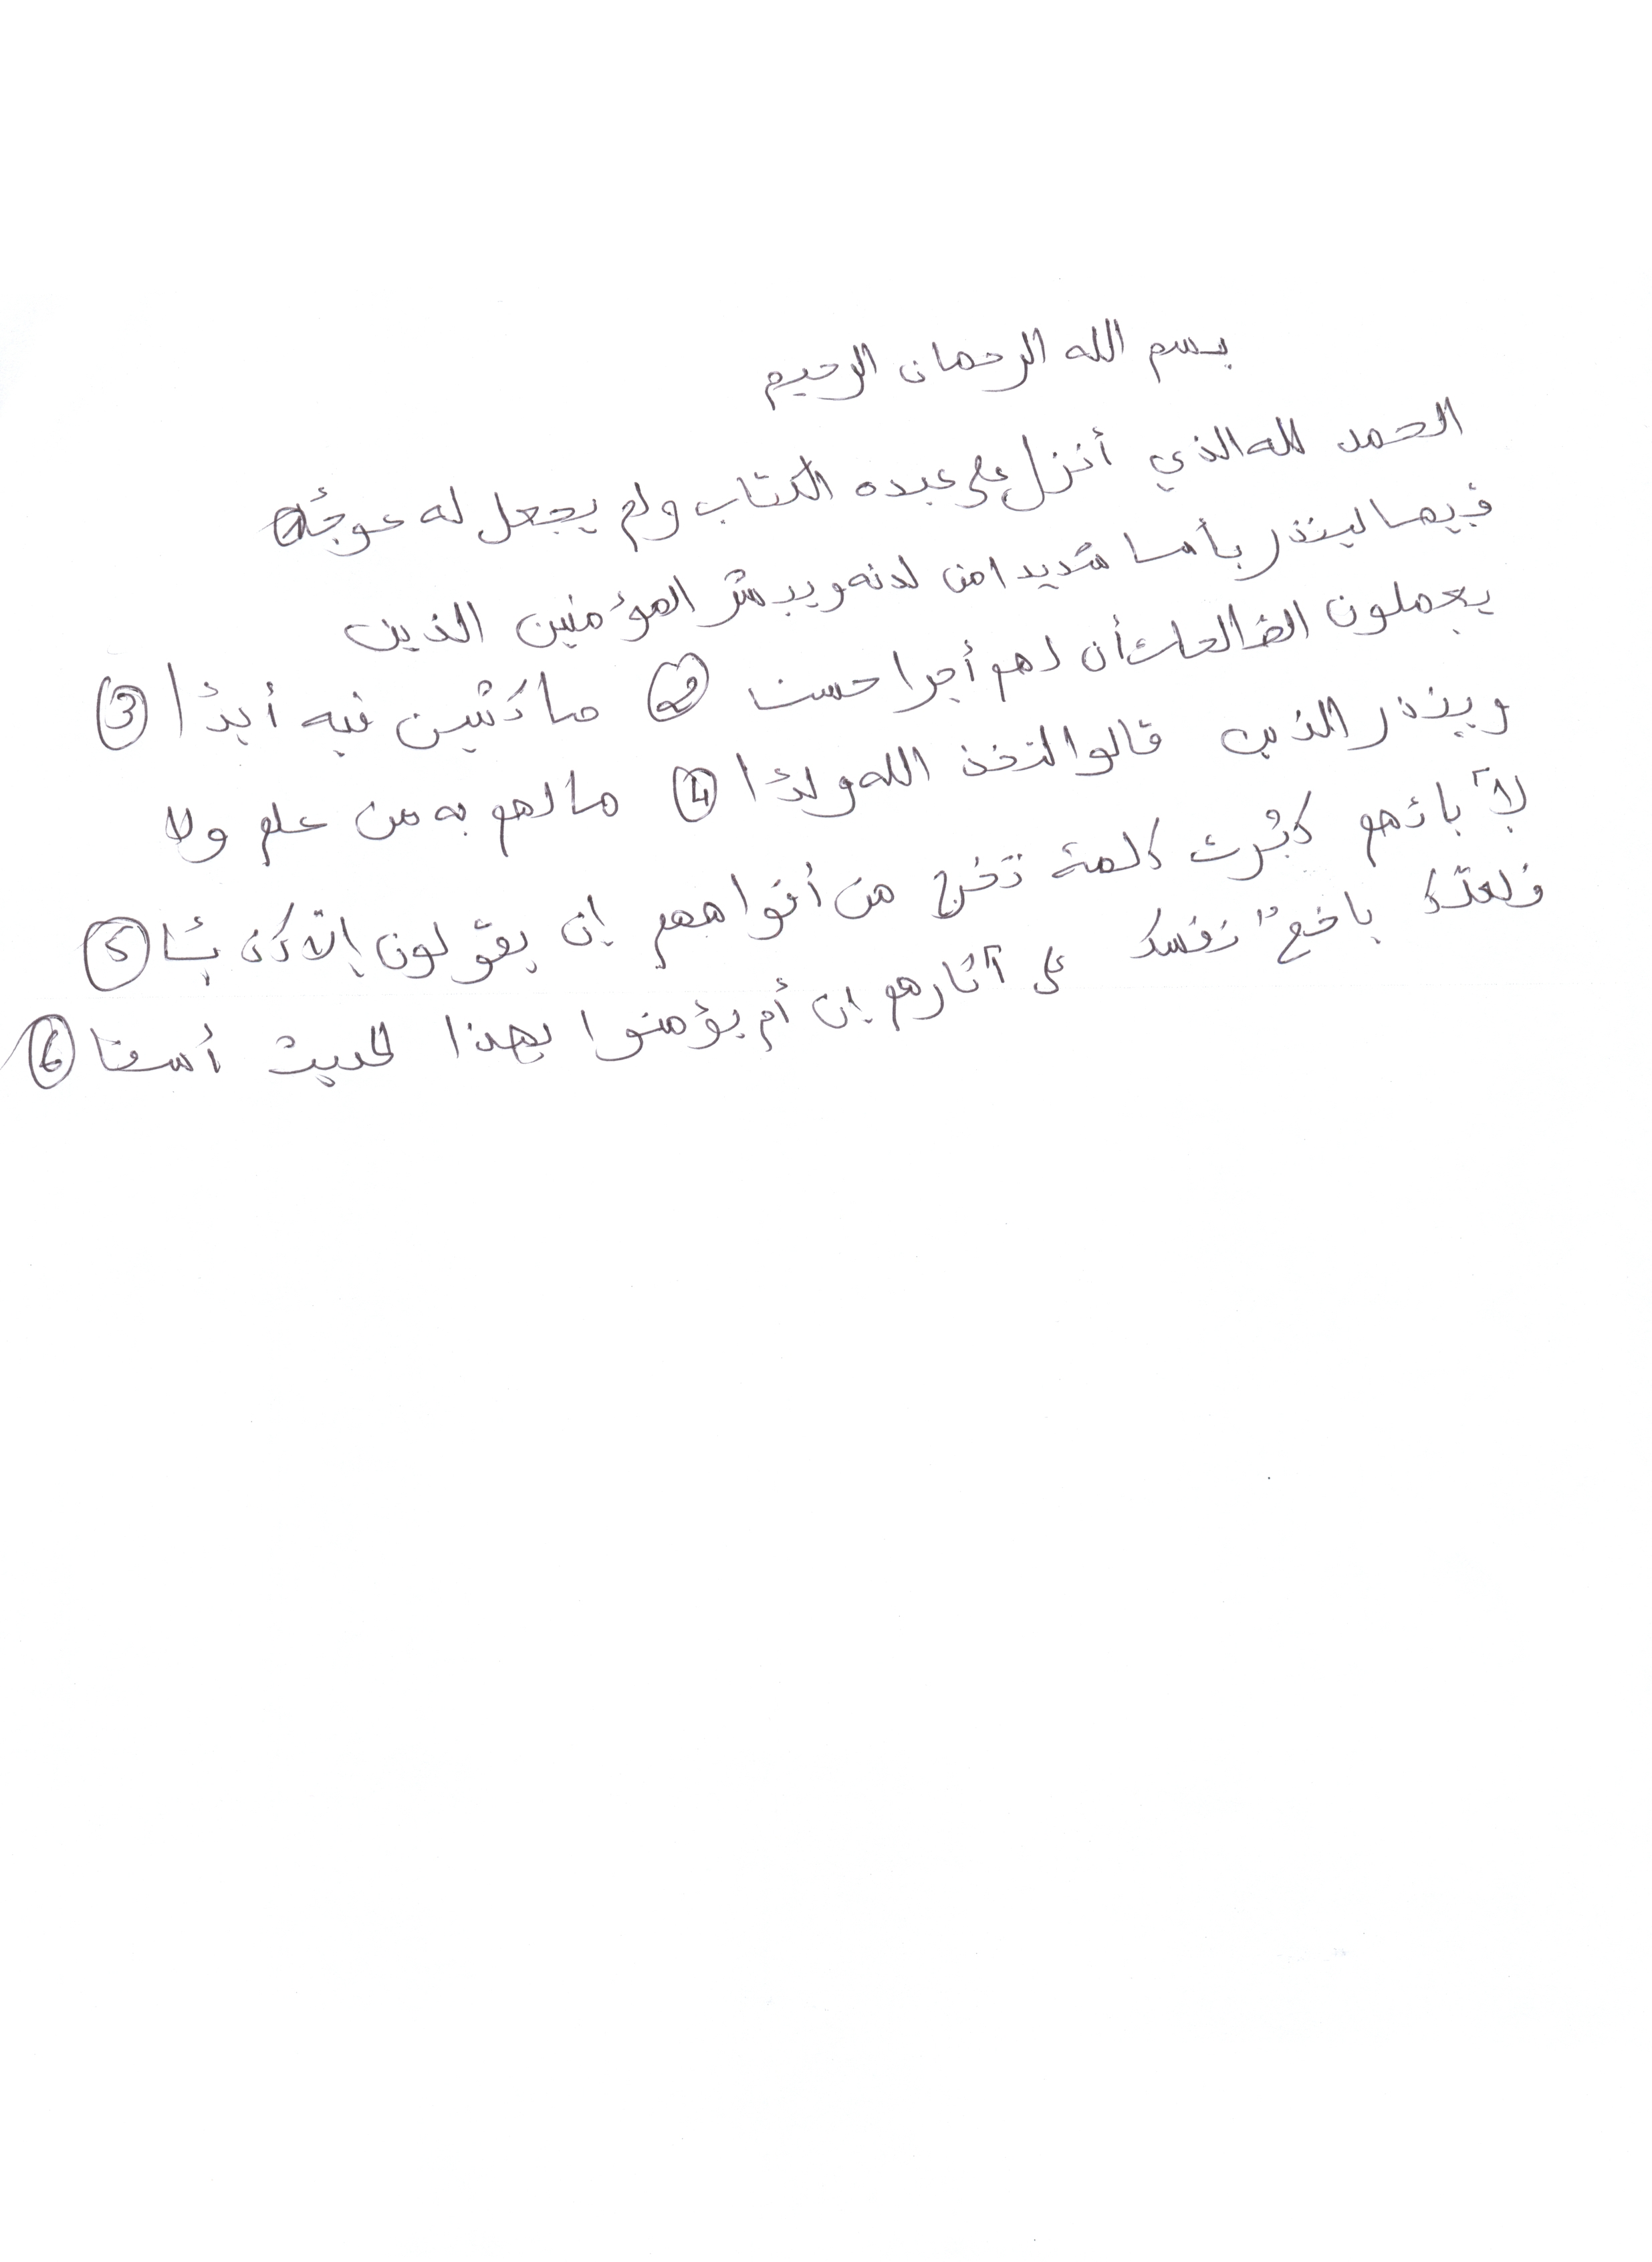 بسم الله الرحمان الرحيم
الحمد لله الذي أنزل على عبده الكتاب ولم يجعل له عوجًا ①
فيما لينذر بأسا شديدا من لدنه ويبشر المؤمنين الذين
يعملون الصالحات أن لهم أجرا حسنا ② ماكثين فيه أبدًا ③
وينذر الذين قالوا اتخذ الله ولدًا ④ ما لهم به من علم ولا
لآبائهم كبُرت كلمة تخرج من أفواههم إن يقولون إلّا كذبًا ⑤
فلعلّك باخعٌ نفسك على آثارهم إن لم يؤمنوا بهذا الحديث أسفا ⑥